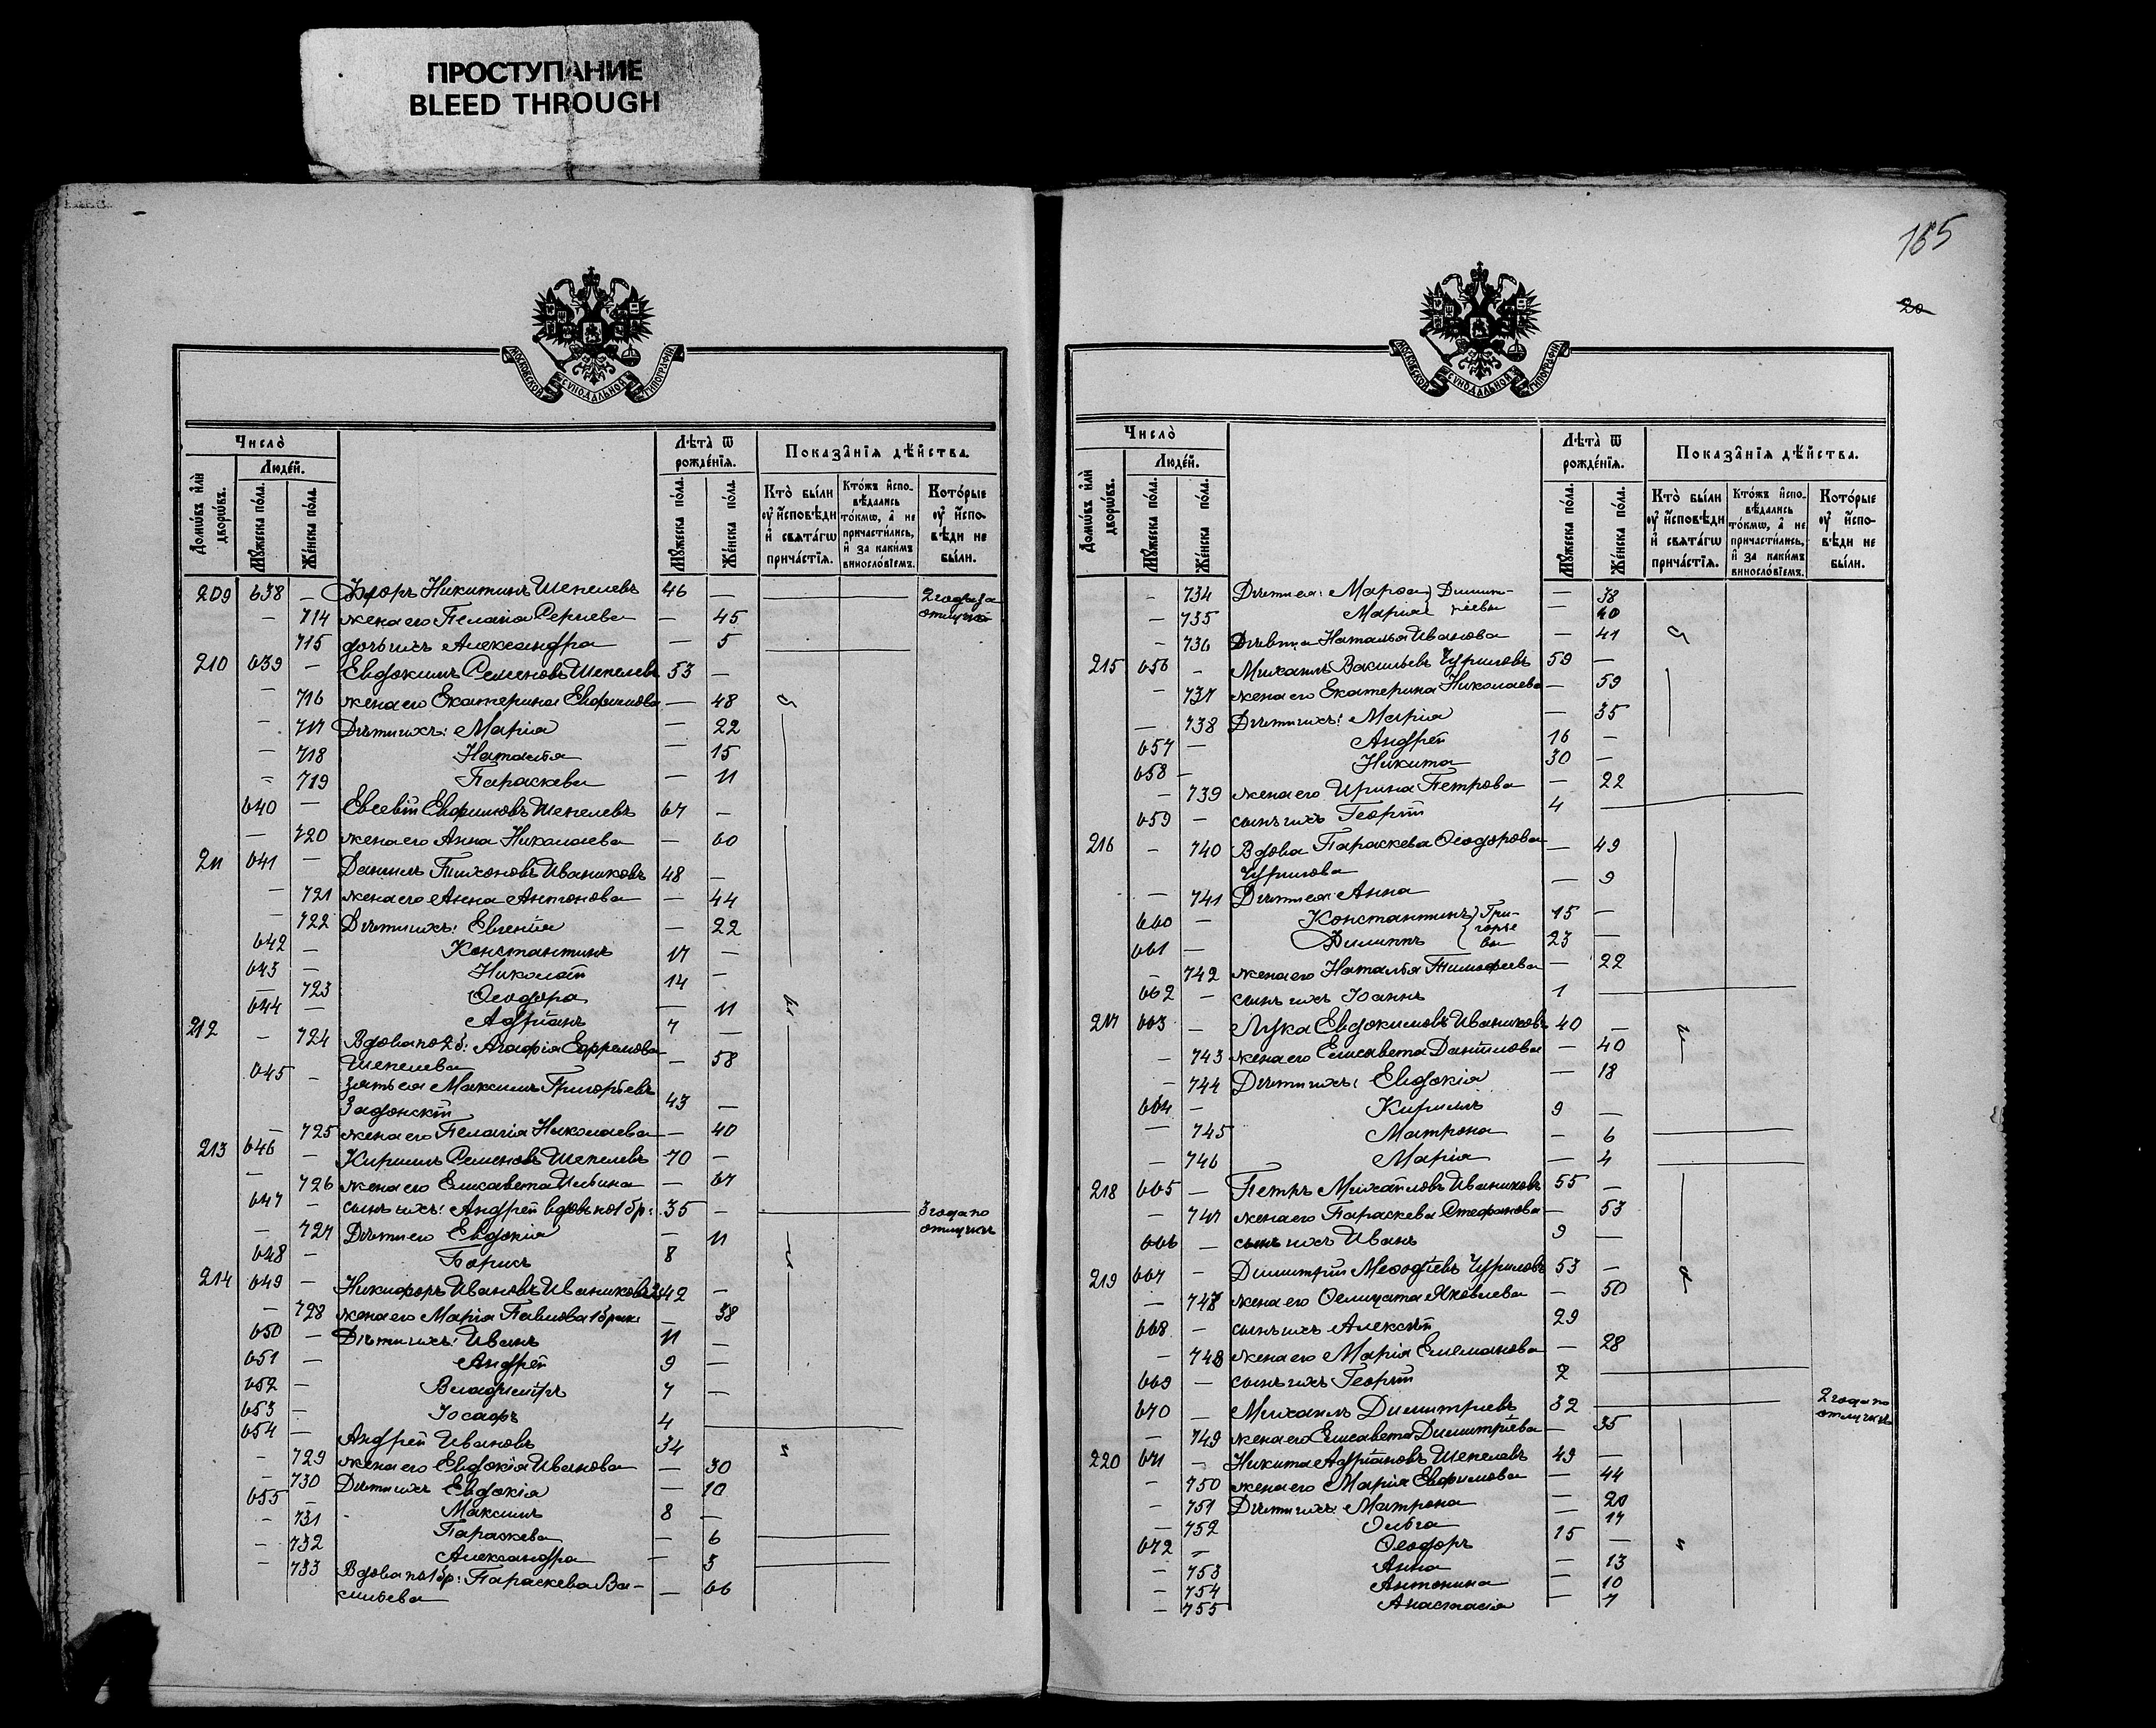 ПРОСТУПАНИЕ
BLEED THROUGH
МОСКОВСКОЙ СѴНОДАЛЬНОЙ ТИПОГРАФІИ
Число̀
Домѡ́въ и҆лѝ дворѡ́въ.
Люде́й.
Мꙋ́жеска по́ла.
Же́нска по́ла.
Лѣ́та ѿ рожде́нїѧ.
Мꙋ́жеска по́ла.
Же́нска по́ла.
Показа̂нїѧ дѣ́йства.
Кто̀ бы́ли ᲂу҆ и҆сповѣди и҆ свѧта́гѡ прича́стїѧ.
Кто́жъ и҆сповѣ́дались то́кмѡ, а҆ не причасти́лись, и҆ за каки́мъ винносло́вїемъ.
Кото́рые ᲂу҆ и҆сповѣди не бы́ли.
209 638 — Ѳедоръ Никитинъ Шепелевъ 46 — 2 года за отлучкой
— 714 жена его Пелагіа Сергіева — 45
715 дочь ихъ Александра — 5
210 639 — Евдокимъ Семеновъ Шепелевъ 53 —
— 716 жена его Екатерина Евфимова — 48
— 717 Дѣти ихъ: Маріа — 22
— 718 Наталія — 15
— 719 Параскева — 11
640 — Евсевій Евфимовъ Шепелевъ 67 —
— 720 жена его Анна Николаева — 60
211 641 — Даниилъ Тихоновъ Иваниковъ 48 —
— 721 жена его Анна Антонова — 44
— 722 Дѣти ихъ: Евгенія — 22
642 — Константинъ 17 —
643 — Николай 14 —
— 723 Ѳеодора — 11
644 — Адріанъ 7 —
212 — 724 Вдова по 2 б: Агафія Ефремова
Шепелева — 58
645 — Зять ея Максимъ Григорьевъ
Задонскій 43 —
— 725 жена его Пелагія Николаева — 40
213 646 — Кириллъ Семеновъ Шепелевъ 70 —
— 726 жена его Елисавета Ильина — 67
647 — сынъ ихъ: Андрей вдовъ по 1 бр: 35 — 3 года по отлучкѣ
— 727 Дѣти его Евдокія — 11
648 — Борисъ 8
214 649 — Никифоръ Ивановъ Иваниковъ 42 —
— 728 жена его Марія Павлова 1 брак: — 38
650 — Дѣти ихъ: Иванъ 11 —
651 — Андрей 9 —
652 — Владиміръ 7 —
653 — Іосафъ 4
654 — Андрей Ивановъ 34
— 729 жена его Евдокія Иванова — 30
— 730 Дѣти ихъ Евдокія — 10
655 — Максимъ 8 —
— 731 Параскева — 6
— 732 Александра — 3
— 733 Вдова по 1 бр: Параскева Ва-
сильева — 66
165
20
Число̀
Домѡ́въ и҆лѝ дворѡ́въ.
Люде́й.
Мꙋ́жеска по́ла.
Же́нска по́ла.
Лѣ́та ѿ рожде́нїѧ.
Мꙋ́жеска по́ла.
Же́нска по́ла.
Показа̂нїѧ дѣ́йства.
Кто̀ бы́ли ᲂу҆ и҆сповѣди и҆ свѧта́гѡ прича́стїѧ.
Кто́жъ и҆сповѣ́дались то́кмѡ, а҆ не причасти́лись, и҆ за каки́мъ винносло́вїемъ.
Кото́рые ᲂу҆ и҆сповѣди не бы́ли.
— 734 Дѣти ея: Марѳа } Димит- — 38
— 735 Марія } ріевы — 40
— 736 Дѣвица Наталья Иванова — 41
215 656 — Михаилъ Васильевъ Чуриловъ 59 —
— 737 жена его Екатерина Николаева — 59
— 738 Дѣти ихъ: Марія — 35
657 — Андрей 16 —
658 — Никита 30 —
— 739 жена его Ирина Петрова — 22
659 — сынъ ихъ Георгій 4
216 — 740 Вдова Параскева Ѳеодорова — 49
Чурилова
— 741 Дѣти ея: Анна — 9
660 — Константинъ } Гри- 15 —
661 — Филиппъ } горье вы 23 —
— 742 жена его Наталія Тимоѳеева — 22
662 — сынъ ихъ Іоаннъ 1
217 663 — Лука Евдокимовъ Иваниковъ 40 —
— 743 жена его Елисавета Даніилова — 40
— 744 Дѣти ихъ: Евдокія — 18
664 — Кириллъ 9 —
— 745 Матрона — 6
— 746 Марія — 4
218 665 — Петръ Михайловъ Иваниковъ 55 —
— 747 жена его Параскева Стефанова — 53
666 — сынъ ихъ Иванъ 9 —
219 667 — Димитрій Меѳодіевъ Чуриловъ 53 —
— 747 жена его Ѳелицата Яковлева — 50
668 — сынъ ихъ Алексѣй 29
— 748 жена его Марія Емеліанова — 28
669 — сынъ ихъ Георгій 2
670 — Михаилъ Димитріевъ 32 2 года по отлучкѣ
— 749 жена его Елисавета Димитріева — 35
220 671 — Никита Адріановъ Шепелевъ 49 —
— 750 жена его Марія Евфимова — 44
— 751 Дѣти ихъ: Матрона — 20
— 752 Ольга — 17
672 — Ѳеодоръ 15 —
— 753 Анна — 13
— 754 Антонина — 10
— 755 Анастасія — 7